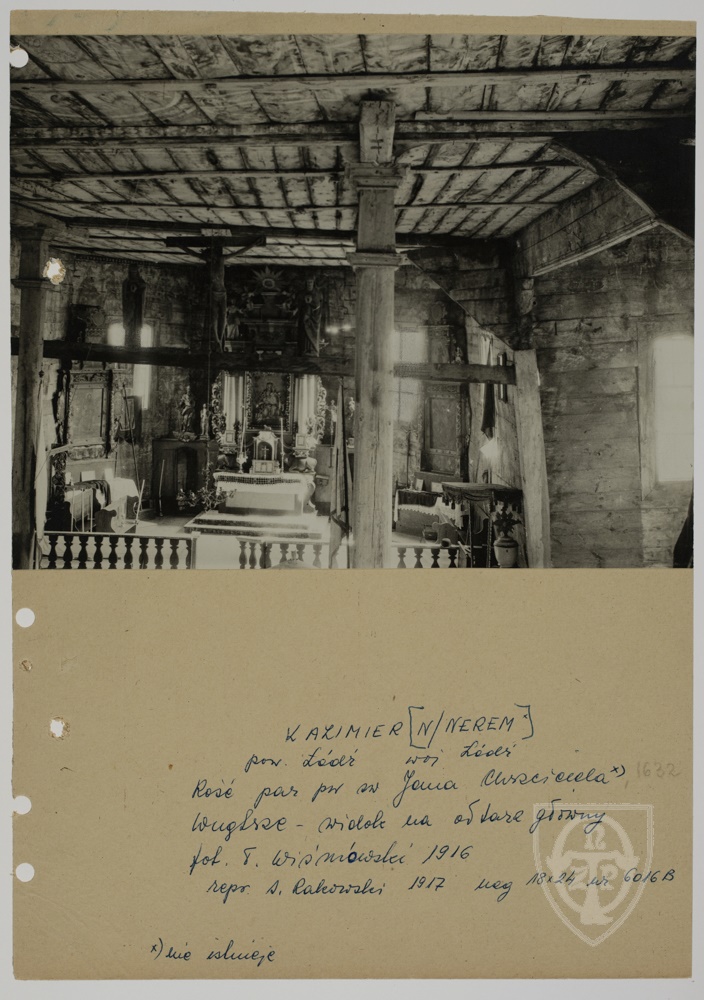 KAZIMIER [N/NEREM]
pow. Łódź woj Łódź
Kość par pw św Jana Chrzciciela x), 1632
Wnętrze - widok na ołtarz główny
fot. T. Wiśniowski 1916
repr. S. Rakowski 1917 neg 18x24 nr 6016B
x) nie istnieje